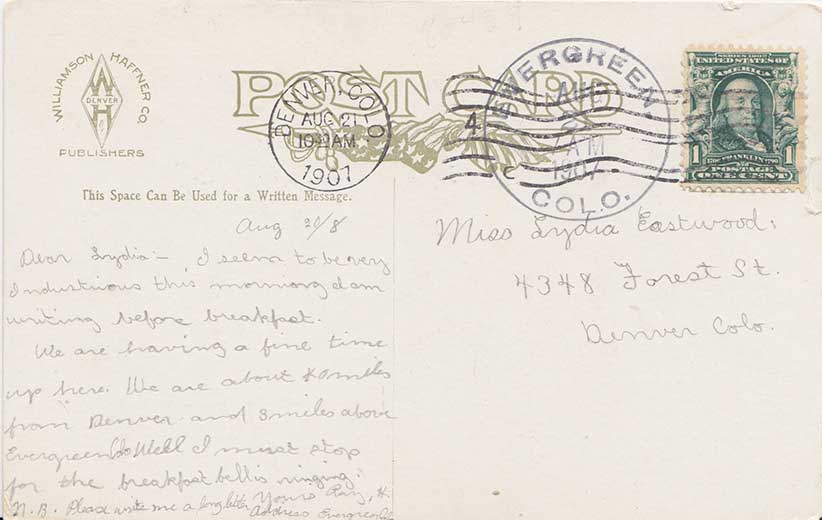 WILLIAMSON HAFFNER CO.
W H
DENVER
PUBLISHERS
POST CARD
DENVER, COLO
AUG 21
AM
1907
EVERGREEN,
AUG
AM
1907
COLO.
4
SERIES 1902
UNITED STATES OF AMERICA
FRANKLIN
1 1
POSTAGE
ONE CENT
This Space Can Be Used for a Written Message.
Aug
Dear Lydia:- I seem to be very
industrious this morning I am
writing before breakfast.
We are having a fine time
up here. We are about miles
from Denver and 3 miles above
Evergreen. Well I must stop
for the breakfast bell is ringing.
Yours H.
N.B. Please write me a long letter
Address Evergreen
Miss Lydia Eastwood,
4348 Forest St.
Denver Colo.